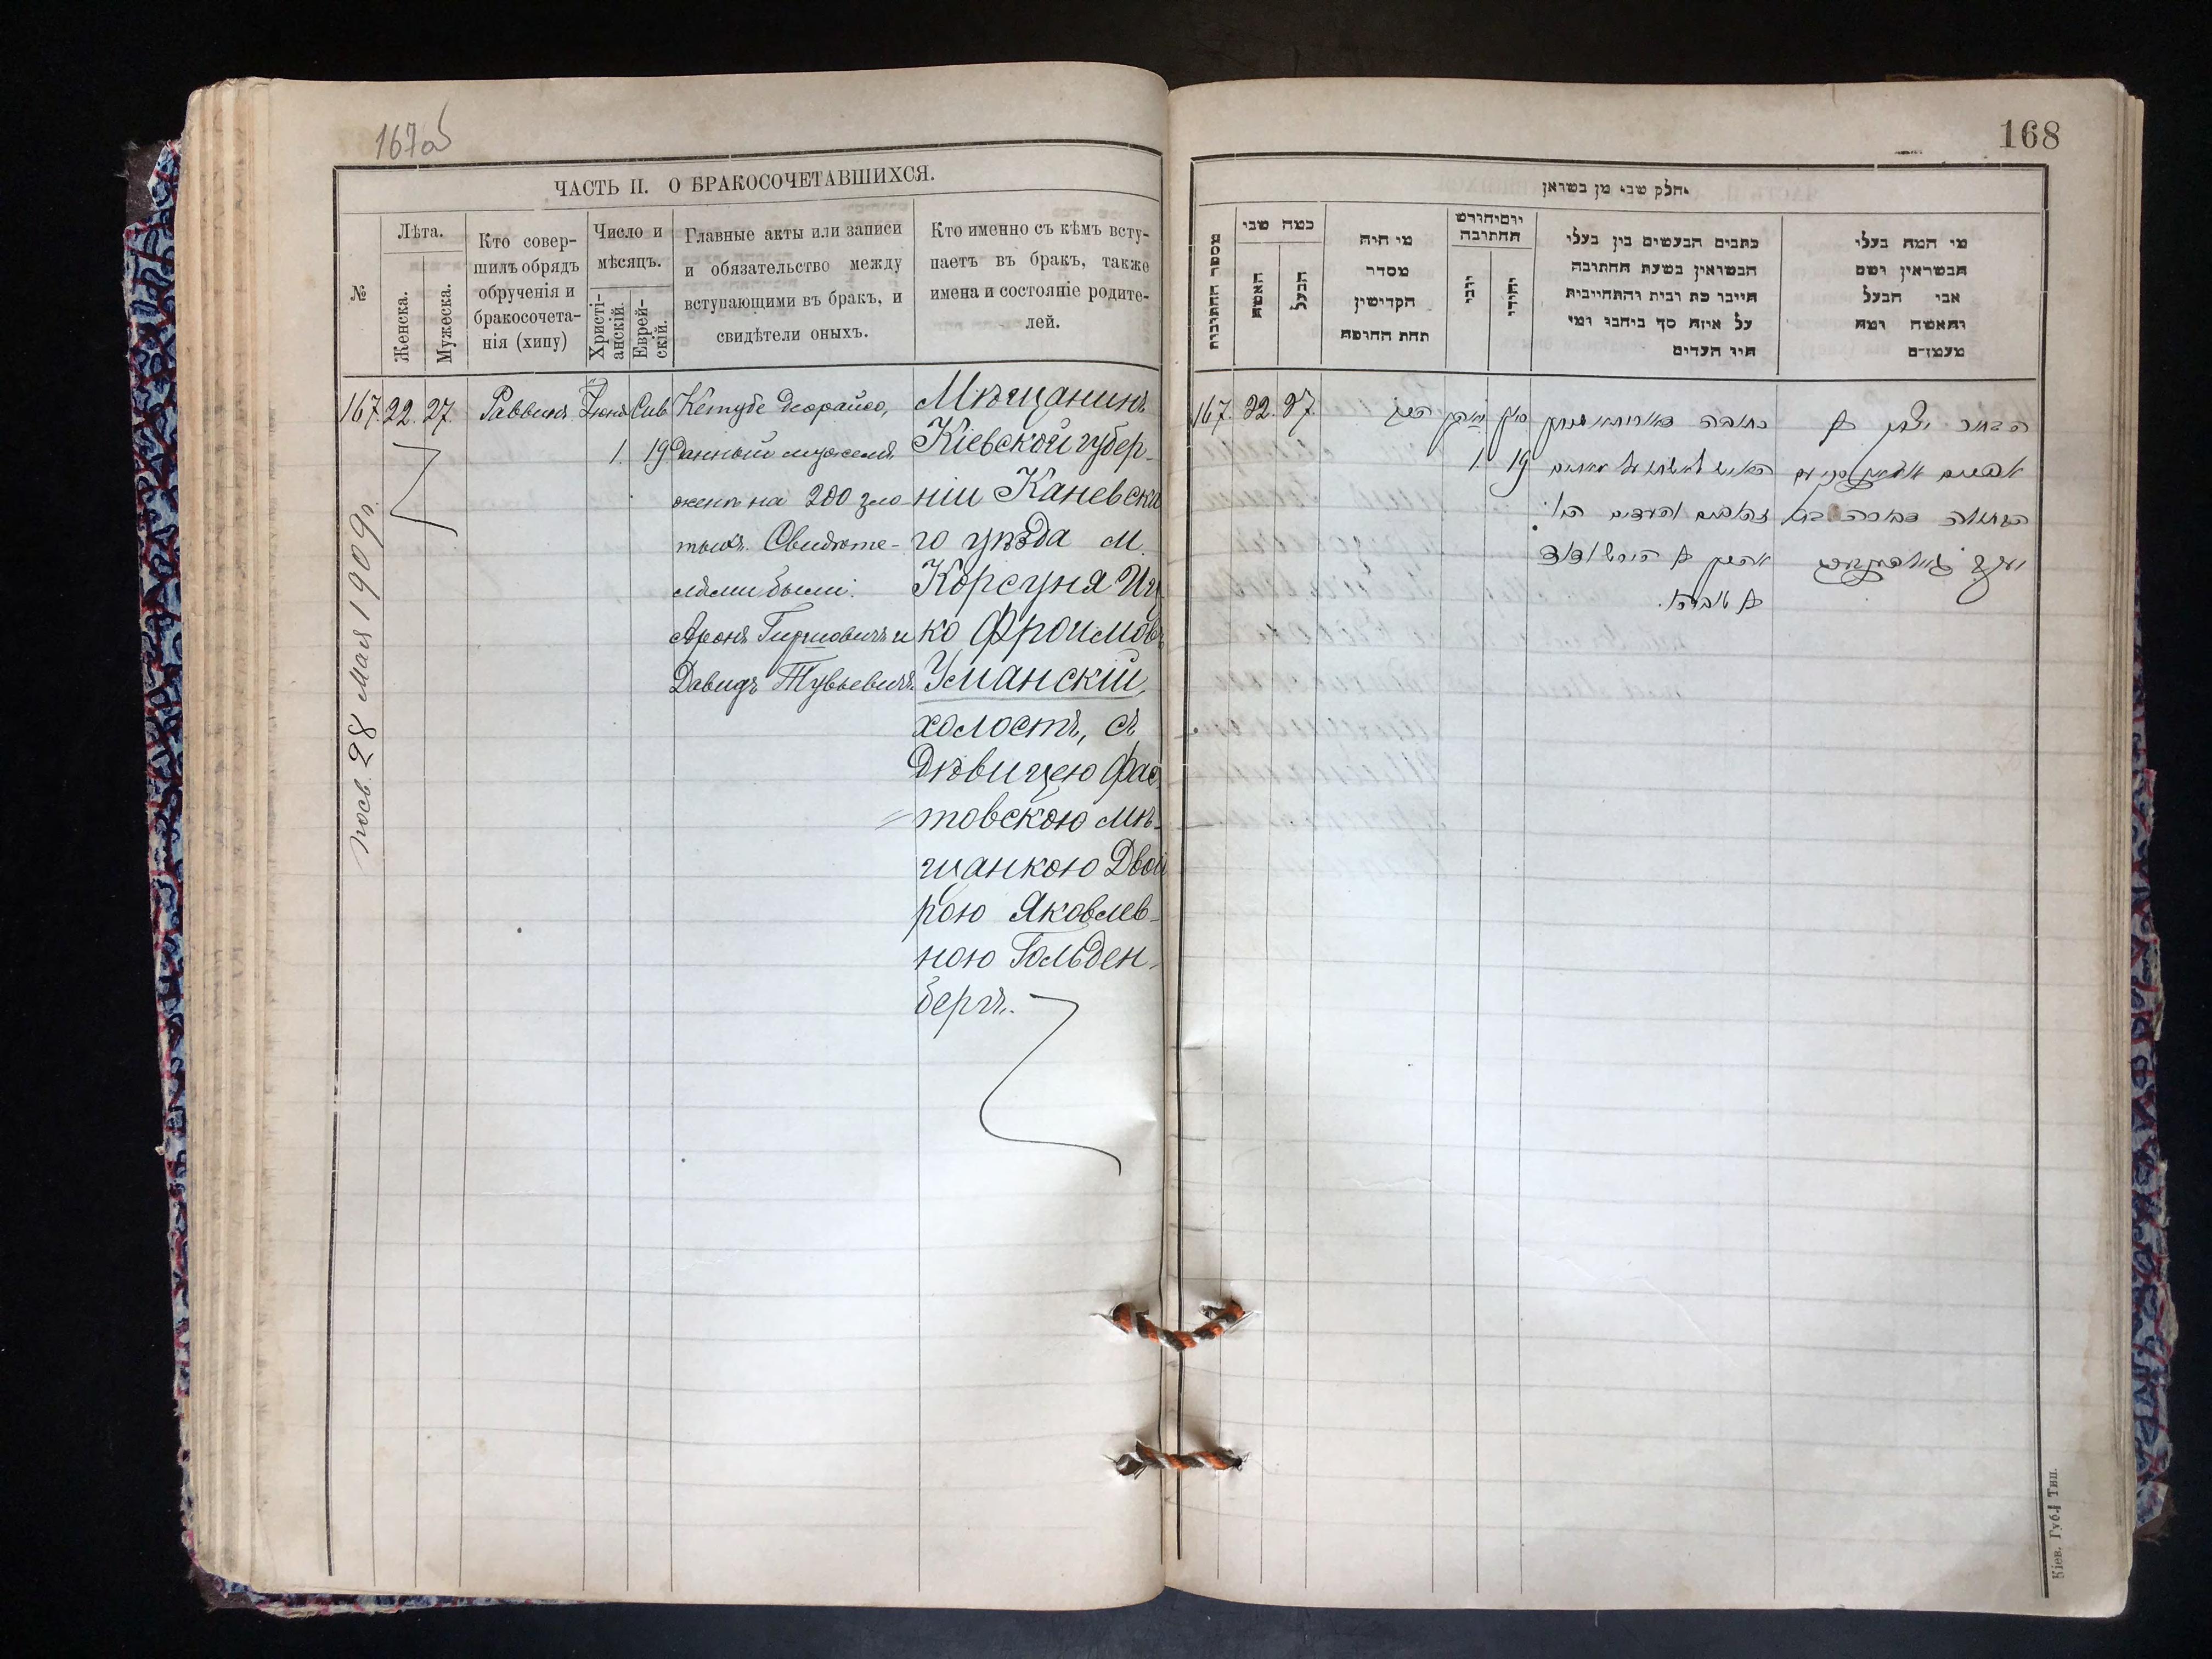 167об
ЧАСТЬ II. О БРАКОСОЧЕТАВШИХСЯ.
№
Лѣта.
Женска.
Мужеска.
Кто совер-
шилъ обрядъ
обрученія и
бракосочета-
нія (хипу)
Число и
мѣсяцъ.
Христі-
анскій.
Еврей-
скій.
Главные акты или записи
и обязательство между
вступающими въ бракъ, и
свидѣтели оныхъ.
Кто именно съ кѣмъ всту-
паетъ въ бракъ, также
имена и состояніе родите-
лей.
167. 22. 27. Раввинъ Іюня Сив
1. 19
Кетубе деорайсо,
данный мужемъ
жене на 200 зло-
тыхъ. Свидѣте-
лями были:
Аронъ Гершовичъ и
Давидъ Тувьевичъ.
Мѣщанинъ
Кіевской губер-
ніи Каневска
го уѣзда м.
Корсуня Иц
ко Фроимовъ
Уманскій,
холостъ, съ
дѣвицею Фас
товскою мѣ-
щанкою Двой
рою Яковлев-
ною Гольден-
бергъ.
28 Мая 1909 г.
168
חלק שני מן נשואין
מספר החתונות
כמה שני
האשה
הבעל
מי היה
מסדר
הקדושין
תחת החופה
יום וחודש
החתונה
כתבים הנעשים בין בעלי
הנשואין בשעת החתונה
על איזה סך
העדים
מי המה בעלי
הנשואין ושם
אבי הבעל
והאשה ומה
מעמדם
167. 22. 27. הרב
1. 19
הבחור יצחק ב
אפרים
הבתולה
יעקב
אהרן ב הירש ודוד
ב טוביה.
Кіев. Губ. Тип.